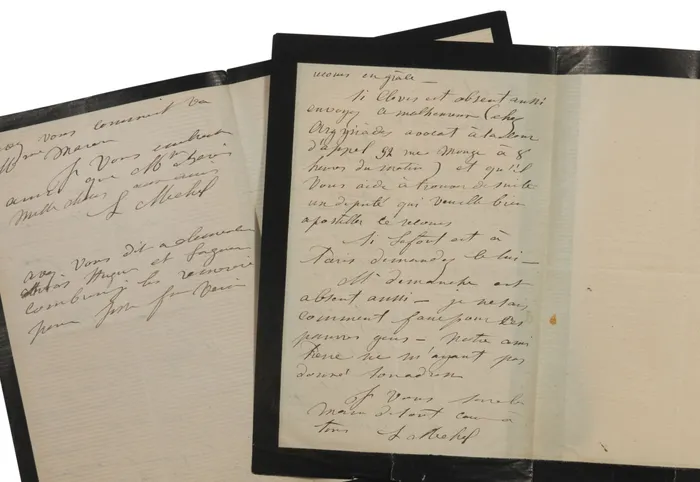 vous comment va
Mme
Je vous embrasse
ainsi que Mme
mille choses aux amis
L Michel
vous dit à
Hugues et
combien je les remercie
pour
recours en grâce —
Si Clovis est absent aussi
envoyez ce malheureux (chez
Argyriadès avocat à la cour
d'appel 52 rue Monge à 8
heures du matin) et qu'il
vous aide à trouver de suite
un député qui veuille bien
apostiller ce recours
Si Lafont est à
Paris demandez le lui —
Mr dimanche est
absent aussi — je ne sais
comment faire pour ces
pauvres gens — notre ami
Pierre ne m'ayant pas
donné son adresse
Je vous serre la
main de tout cœur à
tous L Michel